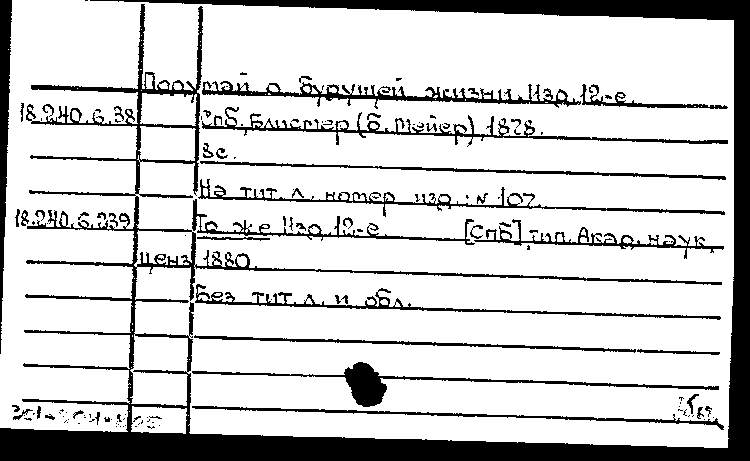 Подумай о будущей жизни. Изд. 12-е.
18.240.6.38 Спб, Блиссмер (б. Мейер), 1878.
8с.
На тит. л. номер изд.: N 107.
18.240.6.239 То же Изд. 12-е [Спб], тип. Акад. наук,
ценз. 1880.
Без тит. л. и обл.